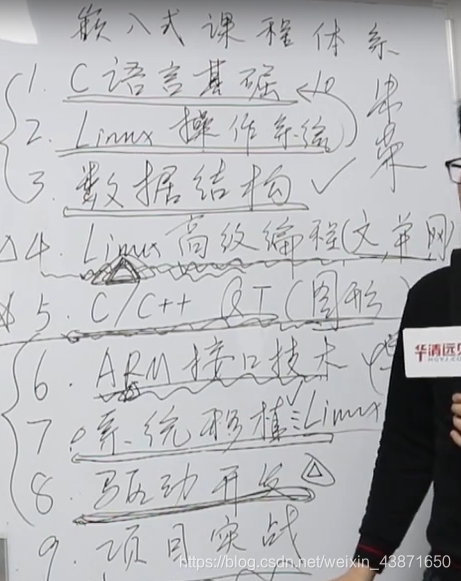 嵌入式课程体系
1. C语言基础
2. Linux 操作系统
3. 数据结构
4. Linux高级编程(文 网
5. C/C++ QT(图形)
6. ARM接口技术
7. 系统移植 Linux
8. 驱动开发
9. 项目实战
华清远见
https://blog.csdn.net/weixin_43871650